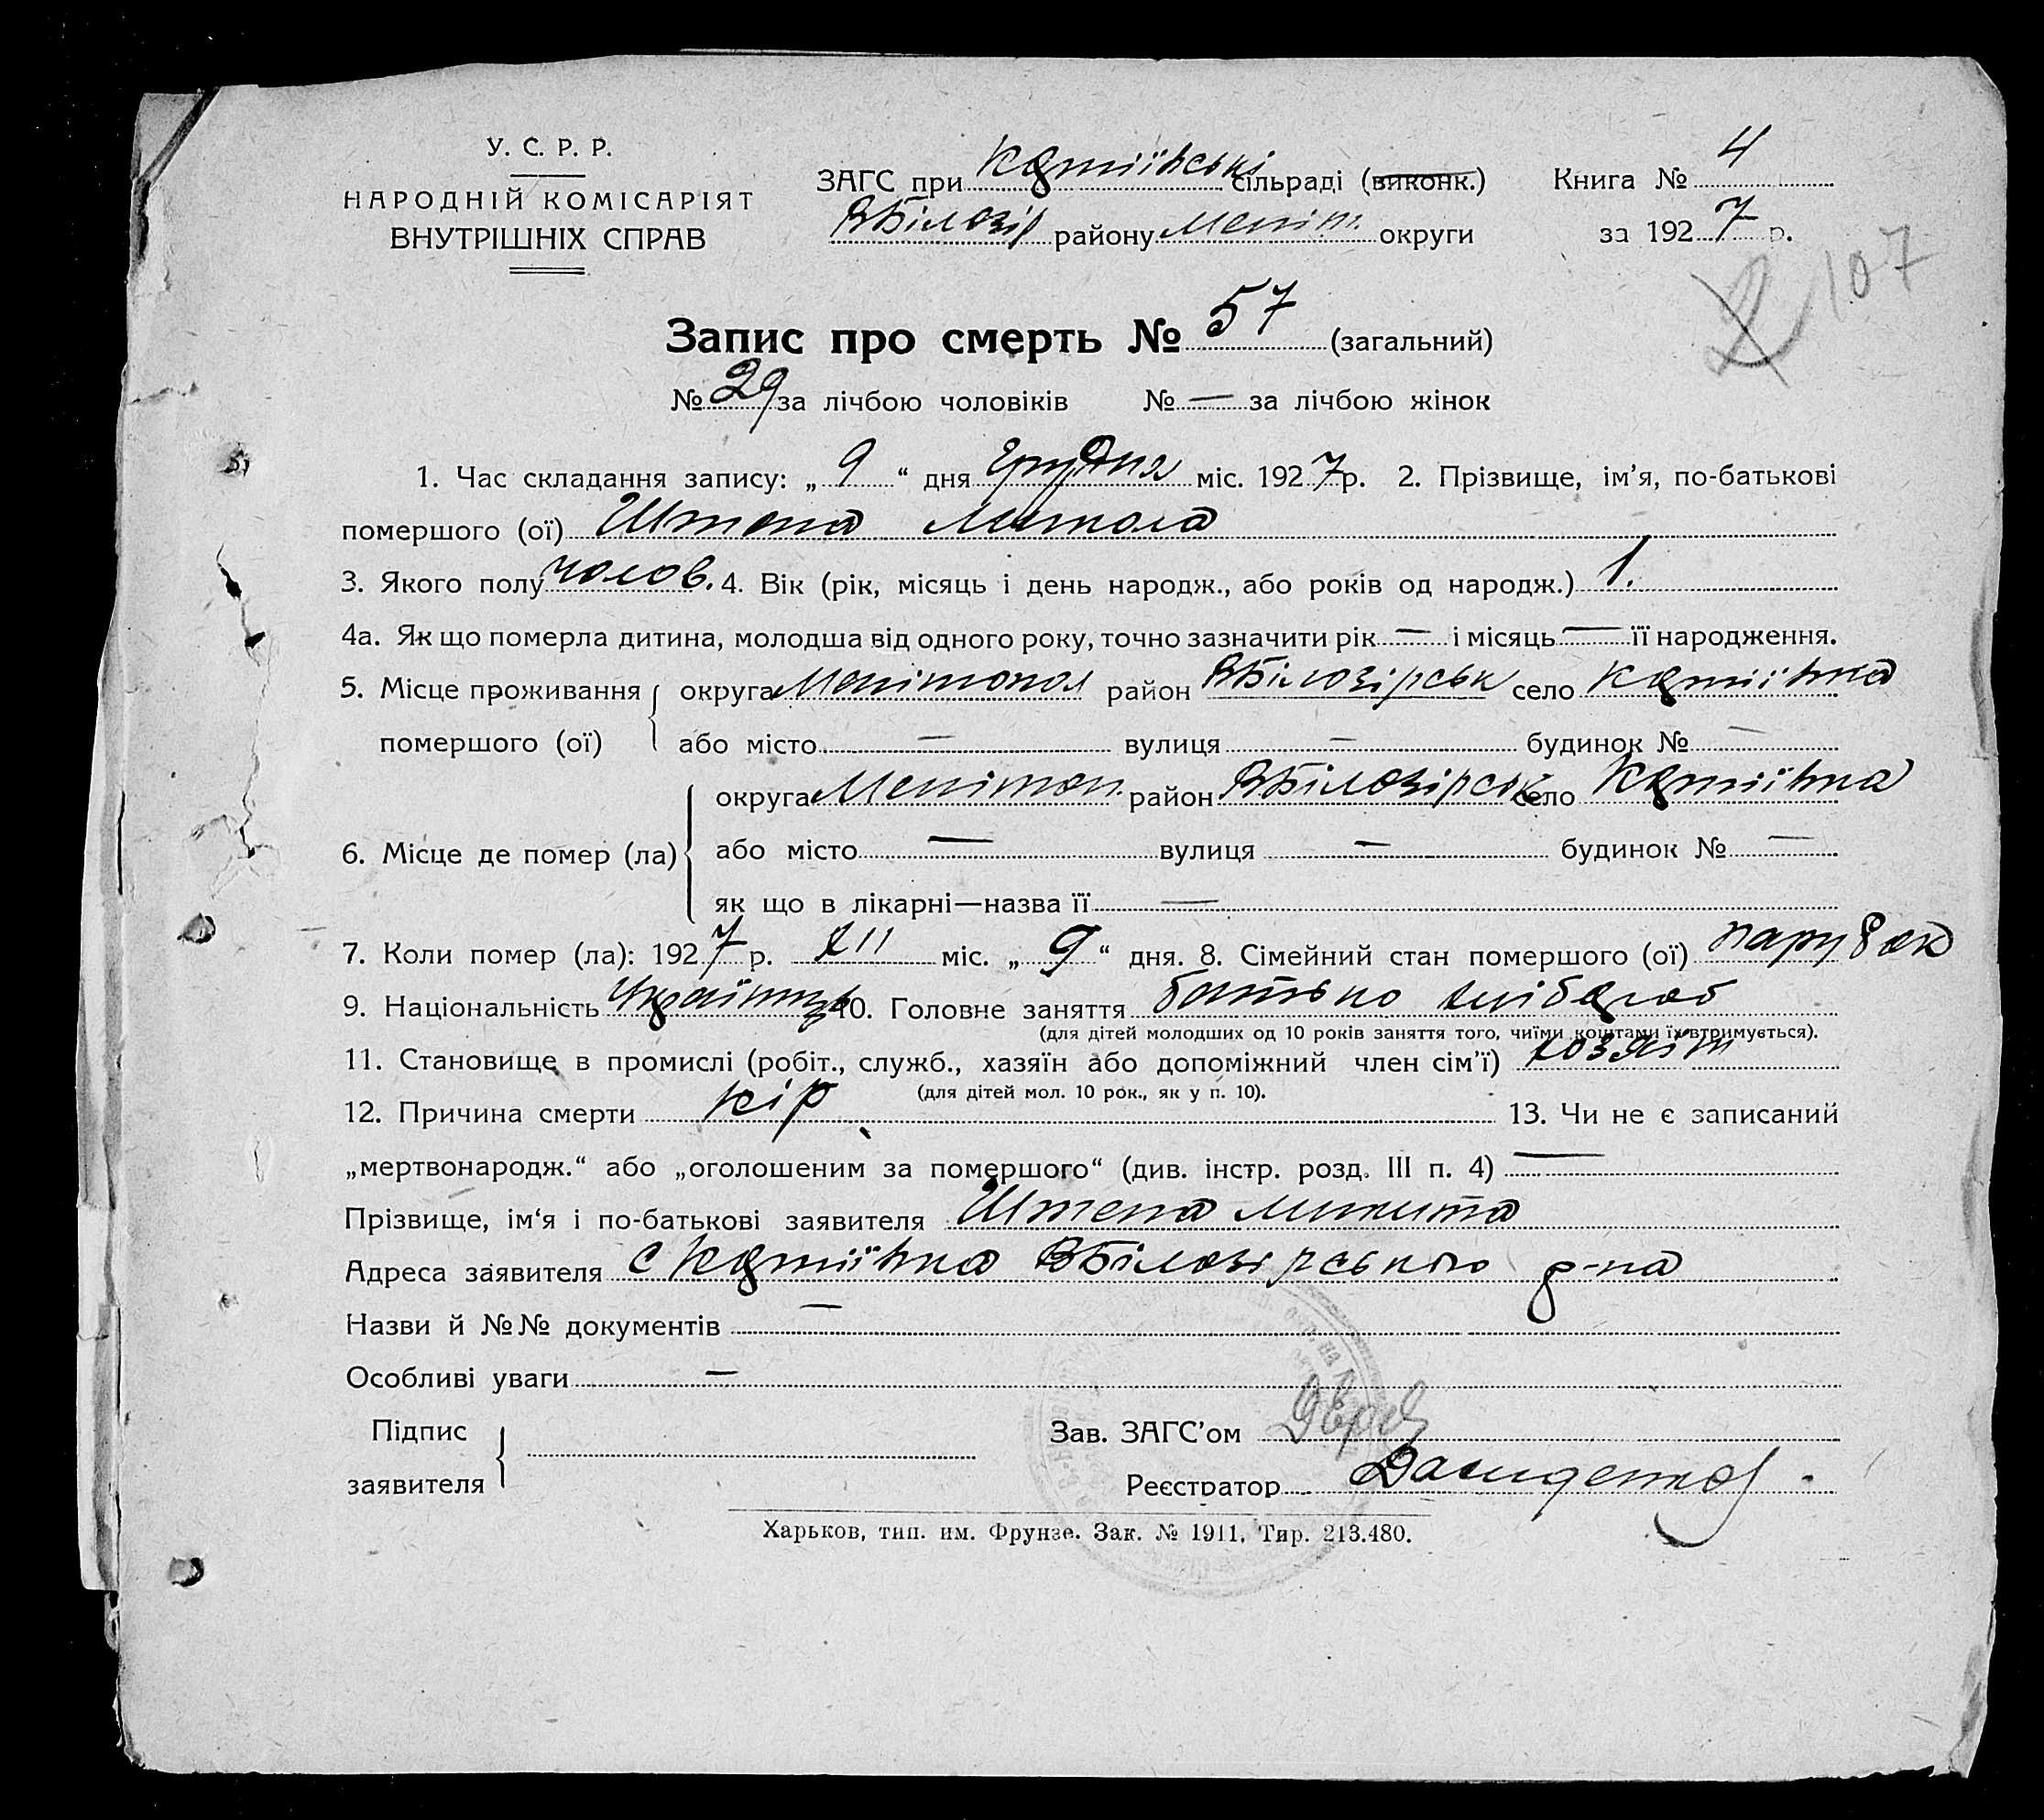 У. С. Р. Р.
НАРОДНІЙ КОМІСАРІЯТ
ВНУТРІШНІХ СПРАВ
ЗАГС при сільраді (виконк.)
ВБілозір району Меліт. округи
Книга № 4
за 1927 р.
107
Запис про смерть № 57 (загальний)
№ 29 за лічбою чоловіків № — за лічбою жінок
1. Час складання запису: „ 9 “ дня Грудня міс. 1927 р. 2. Прізвище, ім’я, по-батькові
помершого (ої) Штепа Микола
3. Якого полу чолов. 4. Вік (рік, місяць і день народж., або років од народж.) 1.
4а. Як що померла дитина, молодша від одного року, точно зазначити рік — і місяць — її народження.
5. Місце проживання округа Мелітопол район ВБілозірськ село
помершого (ої) або місто — вулиця — будинок № —
округа Мелітоп. район ВБілозірськ село
6. Місце де помер (ла) або місто — вулиця — будинок № —
як що в лікарні—назва її —
7. Коли помер (ла): 1927 р. XII міс. „ 9 “ дня. 8. Сімейний стан помершого (ої) парубок
9. Національність Українець 10. Головне заняття батько хлібороб
(для дітей молодших од 10 років заняття того, чиїми коштами їх втримується).
11. Становище в промислі (робіт., служб., хазяїн або допоміжний член сім’ї) хозяїн
(для дітей мол. 10 рок., як у п. 10).
12. Причина смерти кір 13. Чи не є записаний
„мертвонародж.“ або „оголошеним за помершого“ (див. інстр. розд. III п. 4) —
Прізвище, ім‘я і по-батькові заявителя Штепа Микита
Адреса заявителя с ВБілозірського р-на
Назви й №№ документів —
Особливі уваги —
Підпис
заявителя
Зав. ЗАГС’ом
Реєстратор
Харьков, тип. им. Фрунзе. Зак. № 1911. Тир. 213.480.